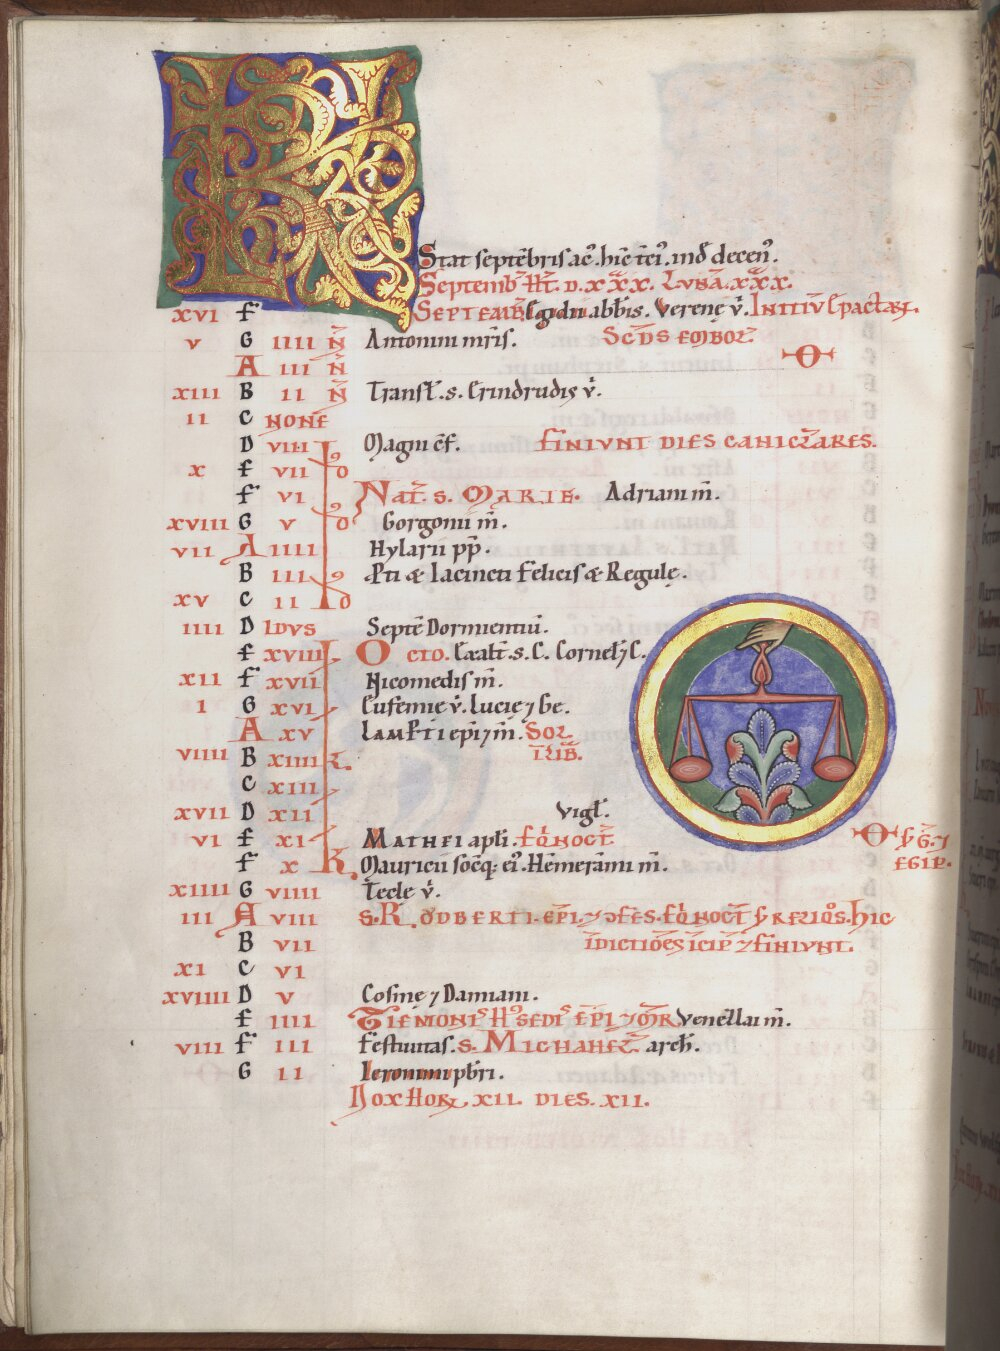 KL
Stat septēbris ac̄. hic̄ tc̄i. ind̄ decen̄.
Septemb̄ Ht̄. D. xxx. Luna. xxx.
xvi F Septemb̄ Egidii abbis. Verene v̄. Initiū Epactaꝝ.
v G IIII N̄ Antonini mr̄is.
A III N̄
xiii B II N̄ Transl̄. s. Erindrudis v̄.
ii C NONE
D viii Id Magni cf̄. Finiunt dies caniculares.
x E vii
F vi Nat̄. s. Marie. Adriani m̄.
xviii G v Gorgonii m̄.
vii A iiii Hylarii pp̄.
B iii Pti & Iacincti Felicis & Regule.
xv C ii Id
iiii D Idvs Septē Dormientiū.
E xviii K Octo. Exalt̄. s. C. Cornelī ⁊ C.
xii F xvii Nicomedis m̄.
i G xvi Eufemie v̄. Lucie ⁊ Ge.
A xv Lamƥti epi ⁊ m̄. Sol
viiii B xiiii K. Lib̄.
C xiii
xvii D xii Vigl̄.
vi E xi Mathei apli. Eq̄noct̄
F x K. Mauricii socq; ei᷒. Hemerāmi m̄.
xiiii G viiii Tecle v̄.
iii A viii S. R. odberti. epi. ⁊ ɔfes. Eq̄noct̄ hic
B vii īdictiōes īcip̄ ⁊ finiunt.
xi C vi
xviiii D v Cosme ⁊ Damiani.
E iiii Venezlai m̄.
viii F iii Festiuitas. s. Michahel arch̄.
G ii Ieronimi pbr̄i.
Nox Hor xii. Dies. xii.